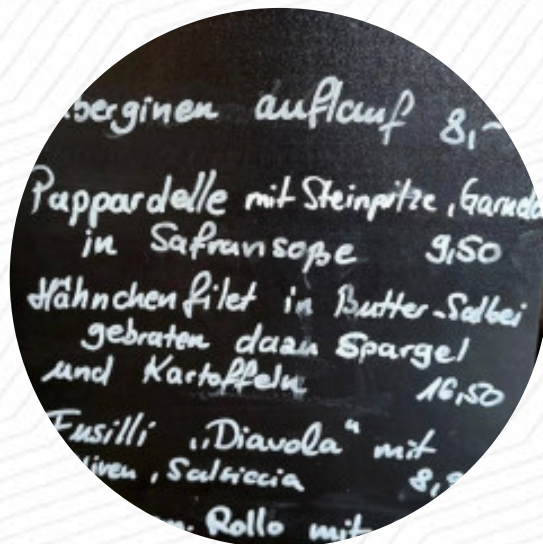 auflauf 8,-
Pappardelle mit Steinpilze,
in Safransoße 9,50
Hähnchenfilet in Butter-Salbei
gebraten dazu Spargel
und Kartoffeln 16,50
Fusilli „Diavola“ mit
, Salsiccia
Rollo mit